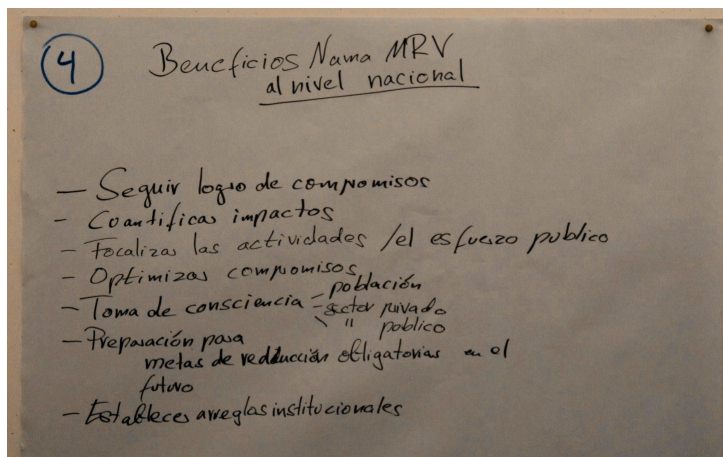 4
Beneficios Nama MRV
al nivel nacional
- Seguir logro de compromisos
- Cuantificar impactos
- Focalizar las actividades / el esfuerzo publico
- Optimizar compromisos
- Toma de consciencia - población
- sector privado
\ " publico
- Preparación para
metas de reducción obligatorias en el
futuro
- Establecer arreglos institucionales